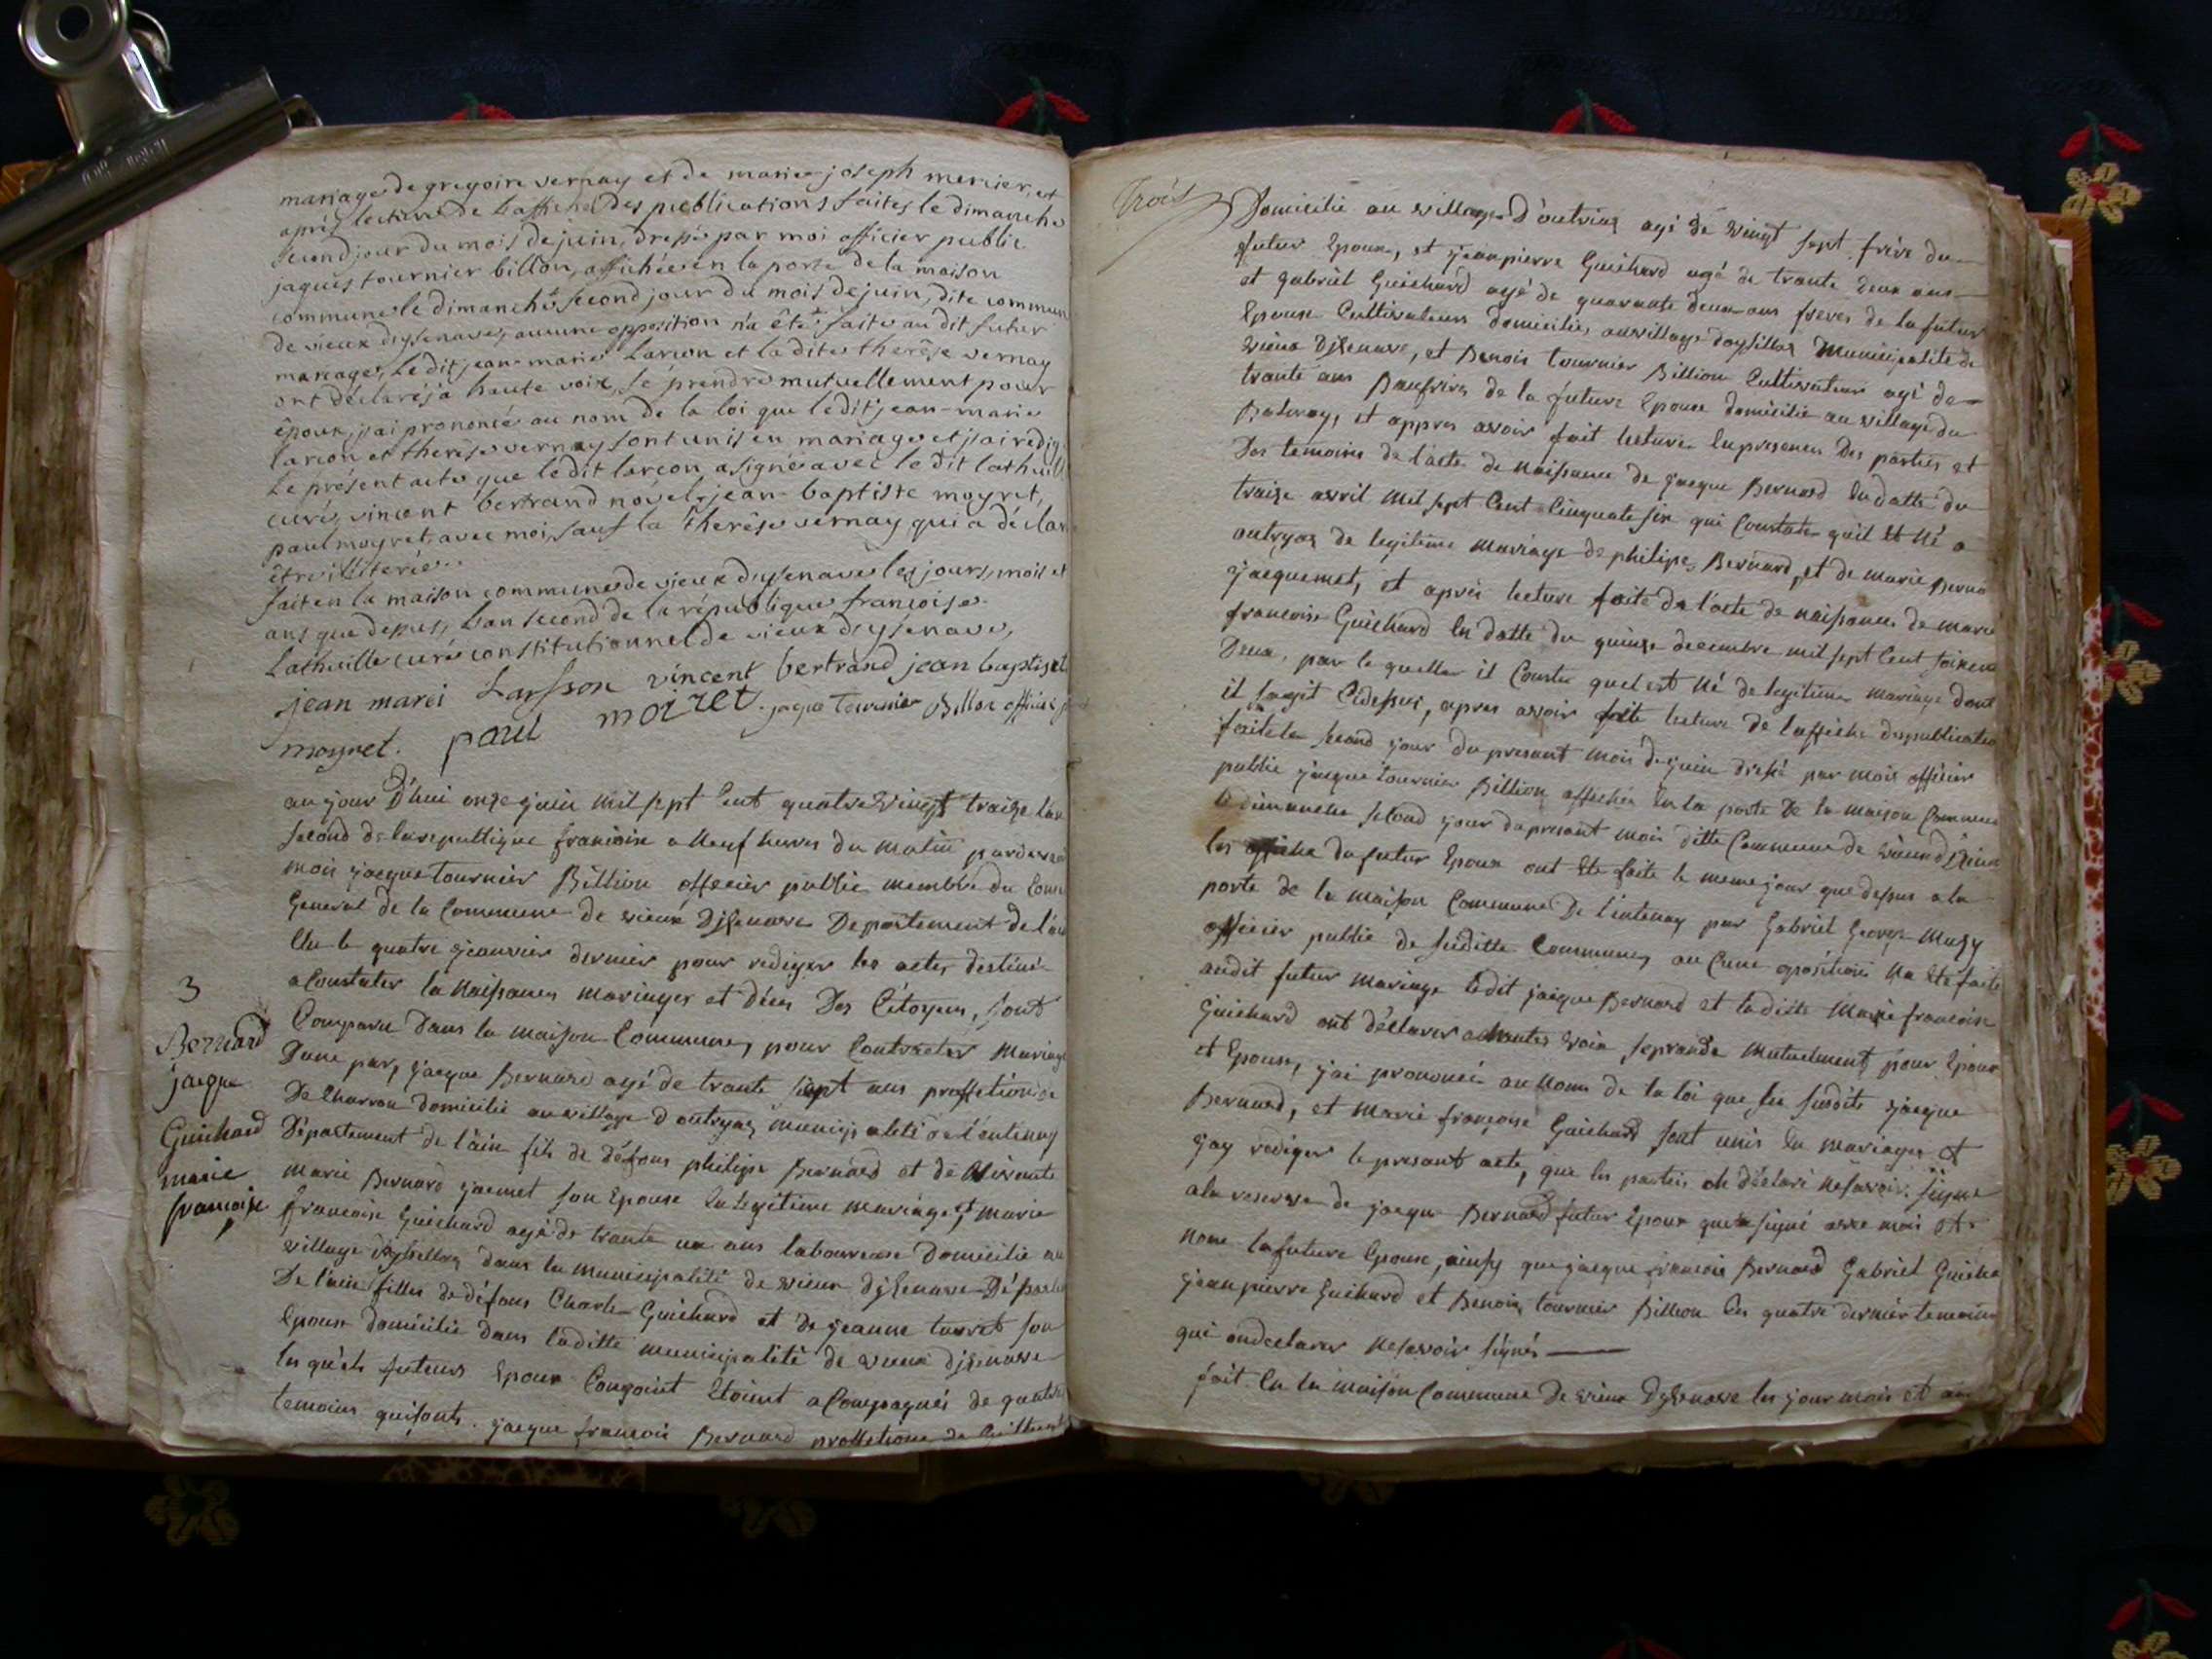 mariage de gregoire vernay et de marie joseph mercier, et
après lecture de l'affiche des publications faites le dimanche
second jour du mois de juin, dressés par moi officier public
jaques tournier billon, affichée en la porte de la maison
commune le dimanche second jour du mois de juin, dite commun
de vieux d'ysenave, aucune opposition n'a été faite au dit futur
mariage, Le dit jean-marie Larson et la dite therése vernay
ont déclaré à haute voix, se prendre mutuellement pour
époux, j'ai prononcé au nom de la loi que le dit jean-marie
larson et therése vernay sont unis en mariage et j'ai redigé
Le présent acte que le dit larson a signé avec le dit lathuille
curé, vincent bertrand novel, jean-baptiste moyret,
paul moyret, avec moi, sauf la therése vernay qui a déclar
être illiterée.
fait en la maison commune de vieux d'ysenave les jours, mois et
ans que depus, L'an second de la république françoise.
Lathuille curé constitutionnel de vieux d'ysenave,
jean marei Larsson vincent bertrand jean baptiste
moyret. paul moizet. jaque Tournier Billon officier
aujour D'hui onze juin mil sept Cent quatre Vingt traize l'an
second de la republique francoise a Neuf heures du matin pardevan
moi jacque tournier Billion officier public membre du Cons
General de la Commune de vieux Djsenave Departement de l'ain
Elu le quatre jeanvier dernier pour rediger les actes destiné
a Constater la Naissances mariages et décès Des Citoyens, sont
Comparu Dans la maison Commune, pour Contracter Mariage
3
Bernard
jacque
Guichard
marie
francoise
Dune par, jacque Bernard agé de trante sept ans proffetion
De Charron domicilié au village d outryaz municipalité de l'entenay
Département de l'ain fils de défons philipe Bernard et de Vivante
marie Bernard jacmet son Epouse en legitime mariage, et marie
francoise Guichard agé de trante un ans laboureuse Domicilié au
village daysillas dans la municipalité de vieux djsenave Départe
De l'ain filles de défons Charle Guichard et de jeanne turret son
Epouse domicilié dans laditte municipalité de vieux djsenave
les quels futeurs Epoux Conjoint Etoient a Compagnés de quatre
temoins quisonts. jacque francois Bernard proffetione de Cultivat
Trois
Domicilié au village D'outriaz agé de vingt sept frère du
futur Epoux, et jeanpierre Guichard agé de trante deux ans
et gabriel Guichard agé de quarante deux ans freres de la futur
Epouse Cultivateurs domiciliés au village daysillas Municipalité de
vieux Djsenave, et Benois tournier Billion Cultivateur agé de
trante ans Baufrère de la future Epouse domicilié au village du
Balmay, et appres avoir fait lecture En presence Des parties et
Des temoins de l'acte de Naissance de jacque Bernard En datte du
traize avril mil sept Cent Cinquate six qui Constate qu'il Et Né a
outryaz de legitime mariage de philipe Bernard, et de marie Berna
jacquemet, et après lecture faite de l'acte de naissance de marie
francoise Guichard En datte du quinze decembre mil sept Cent soixen
Deux, par la quelle il Conste quel est Né de legitime mariage dont
il sagit Cidessus, apres avoir faite lecture de l'affiche depublication
faitele second jour du presant mois de juin dressé par mois officier
public jacque tournier Billion affichée En la porte De la maison Commune
le dimanche second jour du presant mois ditte Commune de vieux djsenave
les affiche du futur Epoux ont Eté faite le meme jour que dessus a la
porte de la maison Commune De l'entenay par Gabriel George Mugy
officier public de suditte Commune, au Cune oposition Na Eté faite
audit futur mariage ledit jaque Bernard et laditte Marie francoise
Guichard ont déclarer ahautes voix, se prande mutuelment pour Epoux
et Epouse, jai prononcé au Nom de la loi que les susdite jacque
Bernard, et marie françoise Guichard sont unis En mariages et
jay rediger le presant acte, que les parties on déclaré Nesavoir signe
ala reserve de jacque Bernard futur Epoux qui a signé avec moi et
none la future Epouse, ainsy que jacque francois Bernard Gabriel Guicha
jeanpierre Guichard et Benois tournier Billion les quatre dernier temoins
qui ondeclarer Nesavoir signés
fait En la maison Commune De vieux Djsenave les jour mois et an